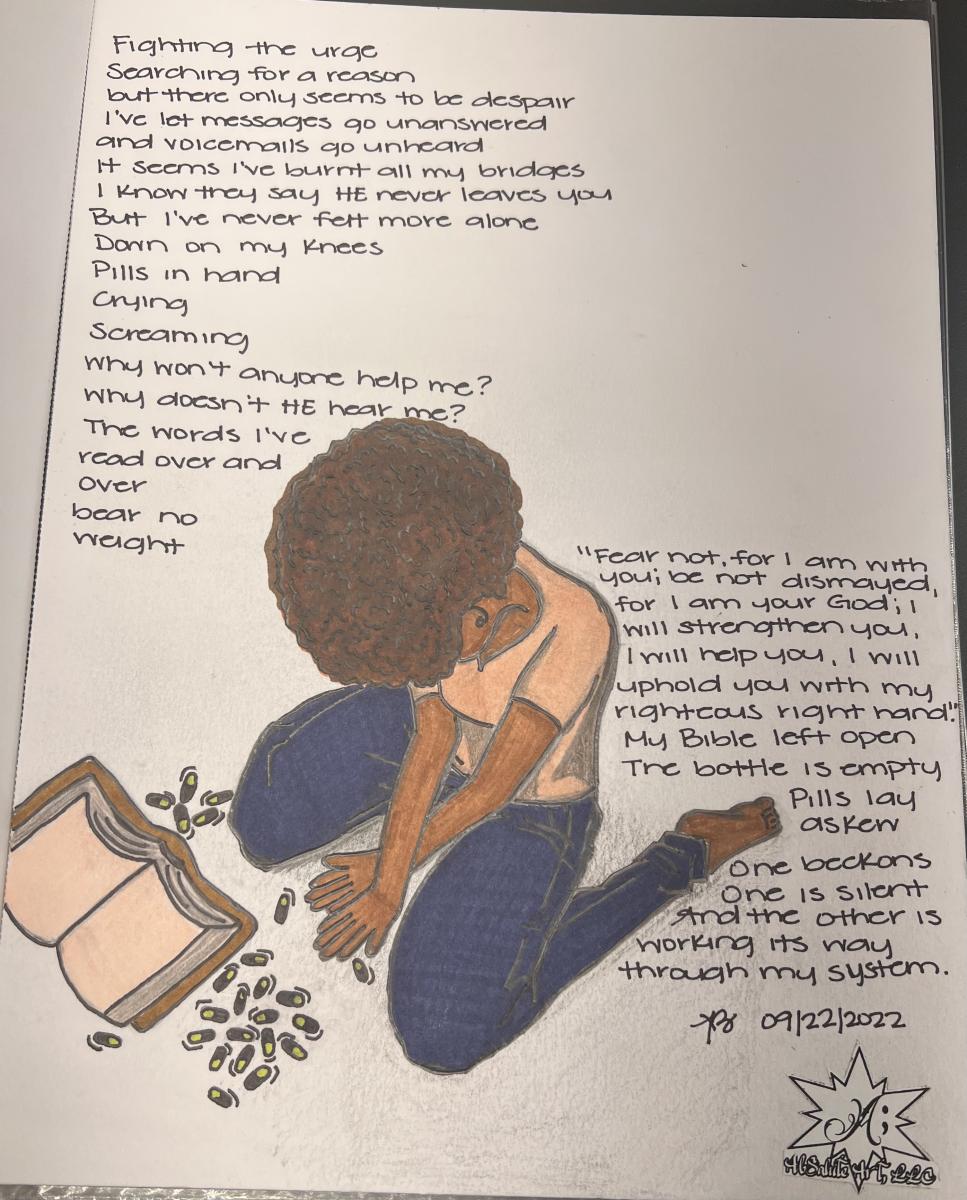 Fighting the urge
Searching for a reason
but there only seems to be despair
I've let messages go unanswered
and voicemails go unheard
It seems I've burnt all my bridges
I know they say HE never leaves you
But I've never felt more alone
Down on my knees
Pills in hand
Crying
Screaming
Why won't anyone help me?
Why doesn't HE hear me?
The words I've
read over and
over
bear no
weight
"Fear not, for I am with
you; be not dismayed,
for I am your God; I
will strengthen you,
I will help you, I will
uphold you with my
righteous right hand."
My Bible left open
The bottle is empty
Pills lay
askew
One beckons
One is silent
And the other is
working its way
through my system.
09/22/2022
A;
AbSolute Art, LLC